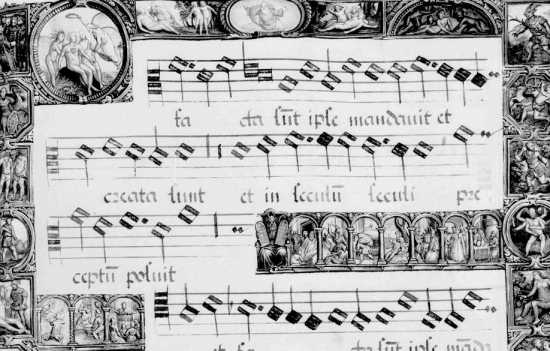 fa cta sūt ipse mandauit et
creata sunt et in seculū seculi pre
ceptū posuit
et fa cta sūt ipse māda